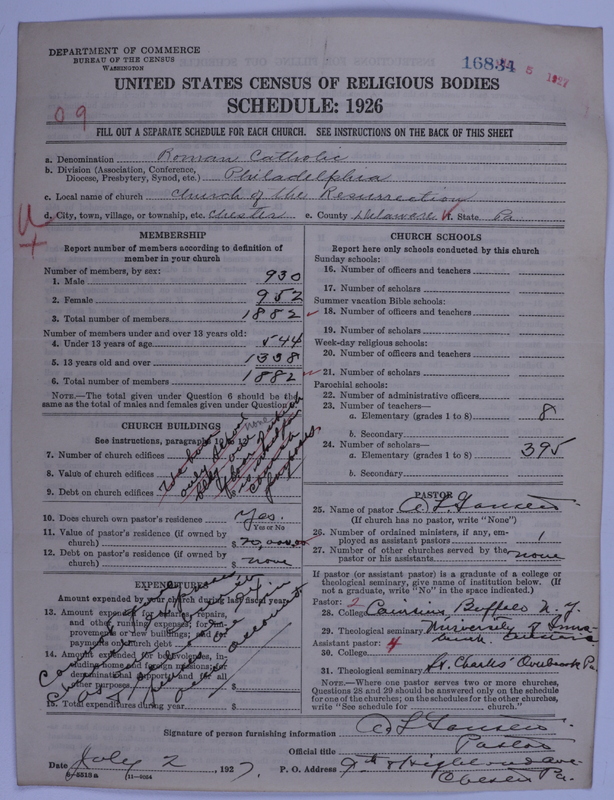 DEPARTMENT OF COMMERCE
BUREAU OF THE CENSUS
WASHINGTON
16834 5 1927
UNITED STATES CENSUS OF RELIGIOUS BODIES
SCHEDULE: 1926
09
FILL OUT A SEPARATE SCHEDULE FOR EACH CHURCH. SEE INSTRUCTIONS ON THE BACK OF THIS SHEET
a. Denomination Roman Catholic
b. Division (Association, Conference, Diocese, Presbytery, Synod, etc.) Philadelphia
c. Local name of church Church of the Resurrection
d. City, town, village, or township, etc. Chester e. County Delaware f. State Pa
MEMBERSHIP
Report number of members according to definition of
member in your church
Number of members, by sex:
1. Male 930
2. Female 952
3. Total number of members 1882
Number of members under and over 13 years old:
4. Under 13 years of age 544
5. 13 years old and over 1338
6. Total number of members 1882
NOTE.—The total given under Question 6 should be the
same as the total of males and females given under Question 3.
CHURCH BUILDINGS
See instructions, paragraphs 10 to 13
none
7. Number of church edifices
8. Value of church edifices $
9. Debt on church edifices $
10. Does church own pastor's residence Yes.
Yes or No
11. Value of pastor's residence (if owned by
church) $ 20,000.00
12. Debt on pastor's residence (if owned by
church) $ none
EXPENDITURES
Amount expended by church during last fiscal year
13. Amount expended for salaries, repairs,
and other running expenses; for im-
provements or new buildings; and for
payments on church debt $
14. Amount expended for benevolences, in-
cluding home and foreign missions; for
denominational support; and for all
other purposes $
15. Total expenditures during year $
CHURCH SCHOOLS
Report here only schools conducted by this church
Sunday schools:
16. Number of officers and teachers
17. Number of scholars
Summer vacation Bible schools:
18. Number of officers and teachers
19. Number of scholars
Week-day religious schools:
20. Number of officers and teachers
21. Number of scholars
Parochial schools:
22. Number of administrative officers
23. Number of teachers—
a. Elementary (grades 1 to 8) 8
b. Secondary
24. Number of scholars—
a. Elementary (grades 1 to 8) 395
b. Secondary
PASTOR
25. Name of pastor
(If church has no pastor, write "None")
26. Number of ordained ministers, if any, em-
ployed as assistant pastors 1
27. Number of other churches served by the
pastor or his assistants none
If pastor (or assistant pastor) is a graduate of a college or
theological seminary, give name of institution below. (If
not a graduate, write "No" in the space indicated.)
Pastor: 2
28. College Canisius Buffalo N.Y.
29. Theological seminary University of Inns-
bruck
Assistant pastor: 4
30. College
31. Theological seminary St. Charles' Overbrook Pa
NOTE.—Where one pastor serves two or more churches,
Questions 28 and 29 should be answered only on the schedule
for one of the churches; on the schedules for the other churches,
write "See schedule for church."
Signature of person furnishing information
Official title Pastor
Date July 2, 1927. P. O. Address 9th & Highland ave
Chester Pa.
8-5518a (11-9054